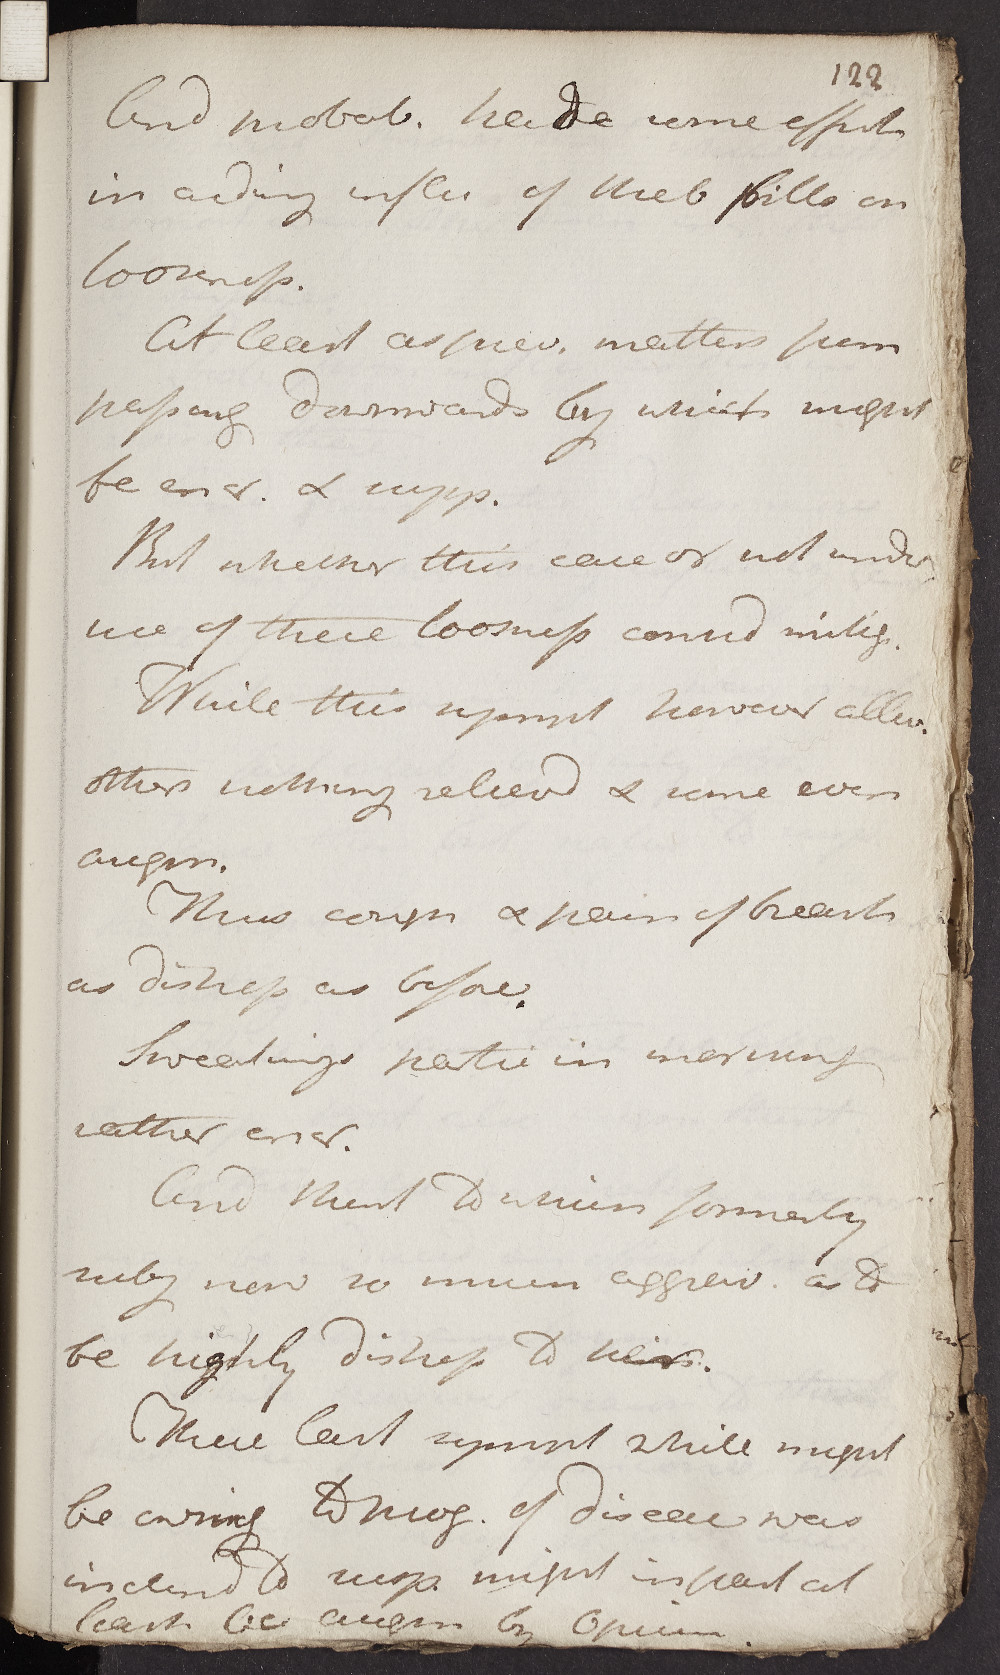 122
And probab. had some effect
in aiding influ of Theb pills on
looseness.
At least as prev. matters from
passing downwards by which might
be encr. & supp.
But whether this case or not under
use of these loosness contind mitig.
While this sympt however allev.
others nothing relievd & some even
augm.
Thus cough & pain of breast
as distress as before.
Sweatings partic in morning
rather encr.
And thirst to which formerly
subj now so much aggrav. as to
be highly distress to her.
These last sympt while might
be owing to prog. of disease was
inclind to susp. might in part at
least be augm by Opium.